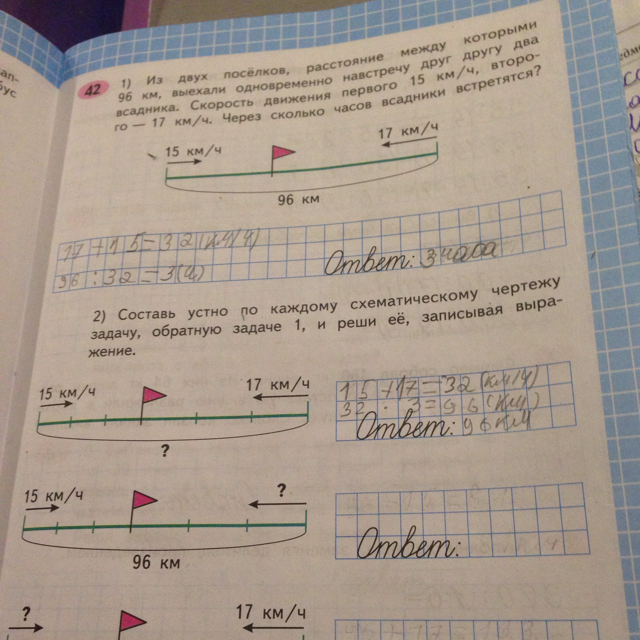 ап-
бус
42
1) Из двух посёлков, расстояние между которыми
96 км, выехали одновременно навстречу друг другу два
всадника. Скорость движения первого 15 км/ч, второ-
го — 17 км/ч. Через сколько часов всадники встретятся?
15 км/ч
17 км/ч
96 км
17 + 15 = 32 (км/ч)
96 : 32 = 3 (ч)
Ответ: 3 часа
2) Составь устно по каждому схематическому чертежу
задачу, обратную задаче 1, и реши её, записывая выра-
жение.
15 км/ч
17 км/ч
?
15 + 17 = 32 (км/ч)
32 · 3 = 96 (км)
Ответ: 96 км
15 км/ч
?
96 км
Ответ:
?
17 км/ч